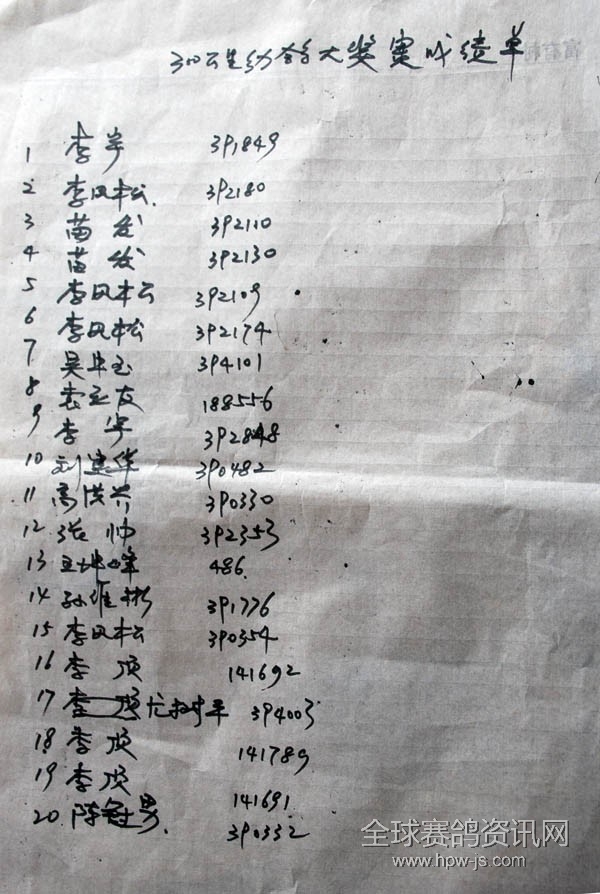 300公里幼鸽大奖赛成绩单
1 李宇 391849
2 李凤松 392180
3 苗发 392110
4 苗发 392130
5 李凤松 392109
6 李凤松 392174
7 吴中玉 394101
8 袁立友 188556
9 李宇 392848
10 刘建华 390482
11 高洪芥 390330
12 张帅 392353
13 王坤峰 486
14 孙维彬 391776
15 李凤松 390354
16 李顶 141692
17 李顶 平 394003
18 李顶 141789
19 李顶 141691
20 陈冠男 390332
全球赛鸽资讯网
www.hpw-js.com